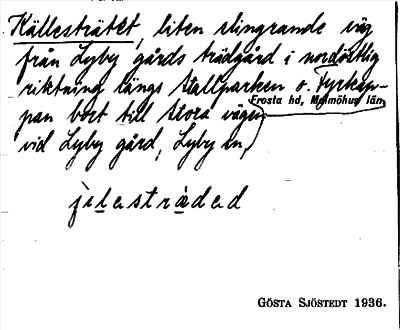 Källesträtet, liten slingrande väg
från Lyby gårds trädgård i nordöstlig
riktning längs Stallparken o. Fyrkap-
pan bort till Stora vägen
Frosta hd, Malmöhus län
vid Lyby gård, Lyby sn,
jilesträded
GÖSTA SJÖSTEDT 1936.